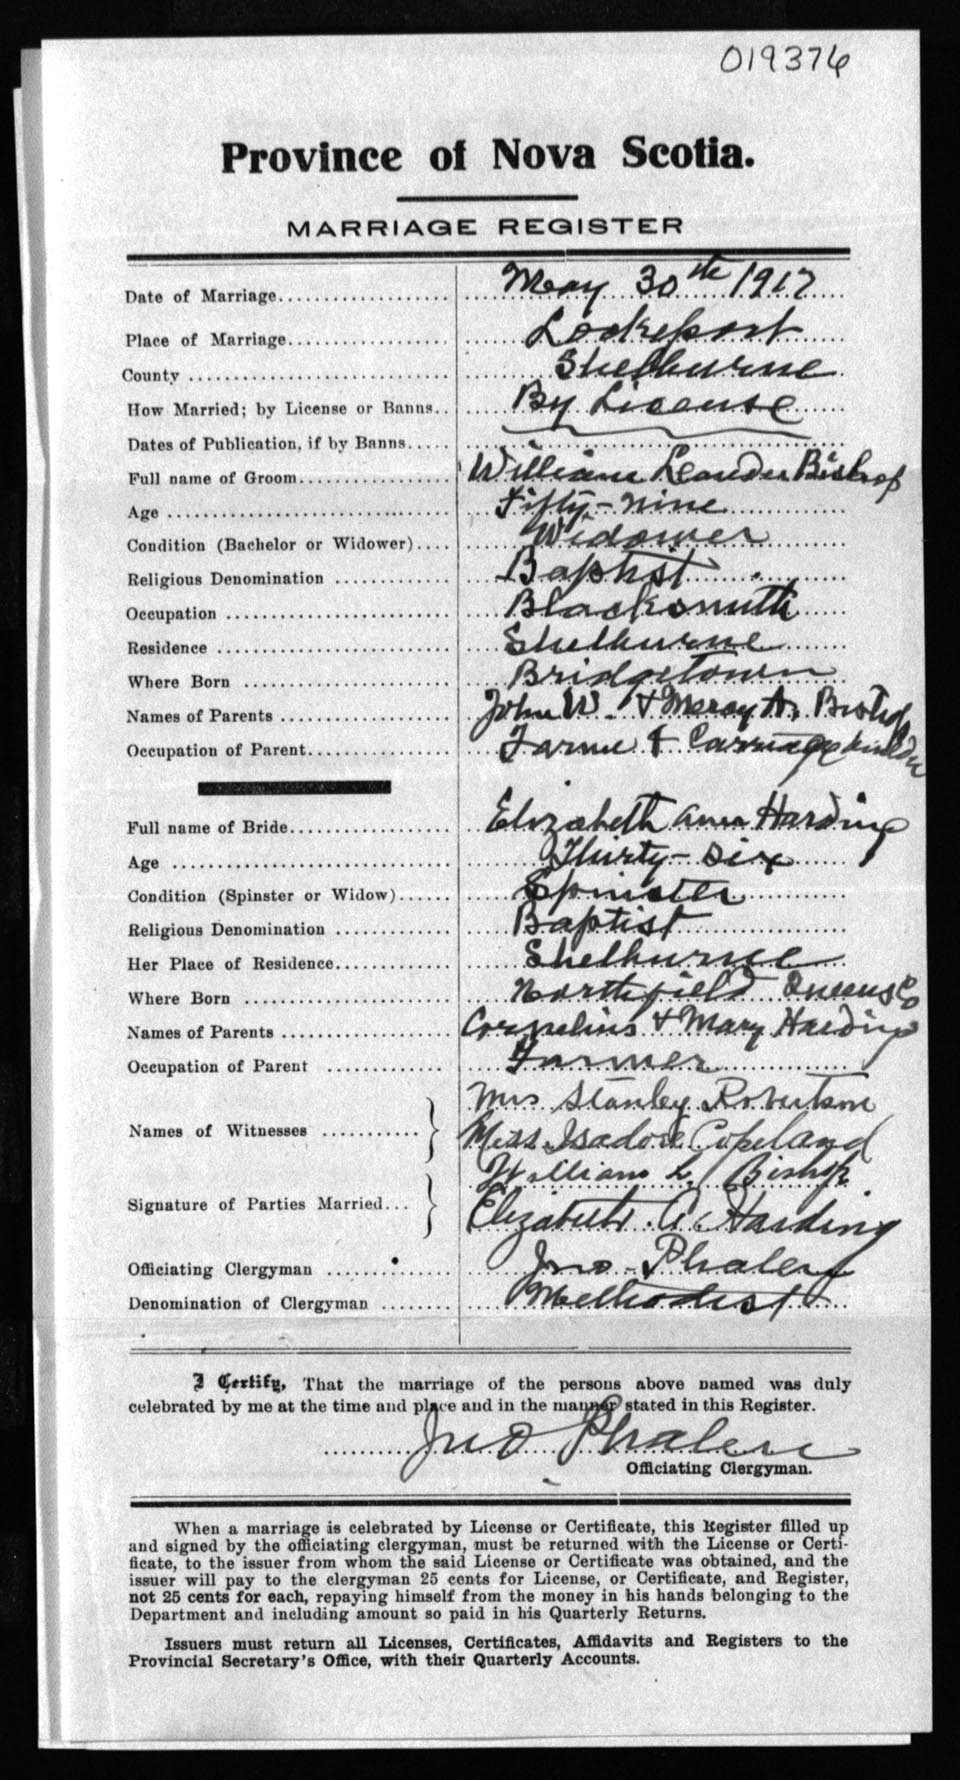 019376
Province of Nova Scotia.
MARRIAGE REGISTER
Date of Marriage.................. May 30th 1917
Place of Marriage................. Lockeport
County ........................... Shelburne
How Married; by License or Banns.. By License
Dates of Publication, if by Banns.....
Full name of Groom................ William Leander Bishop
Age .............................. Fifty-nine
Condition (Bachelor or Widower).... Widower
Religious Denomination ............ Baptist
Occupation ....................... Blacksmith
Residence ........................ Shelburne
Where Born ....................... Bridgetown
Names of Parents ................. John W. & Mercy A. Bishop
Occupation of Parent.............. Farmer & Carriage builder
Full name of Bride................ Elizabeth Ann Harding
Age .............................. Thirty-six
Condition (Spinster or Widow)...... Spinster
Religious Denomination ............ Baptist
Her Place of Residence............ Shelburne
Where Born ....................... Northfield Queens Co
Names of Parents ................. Cornelius & Mary Harding
Occupation of Parent ............. Farmer
Names of Witnesses ........... } Mrs Stanley Robertson
Miss Isadore Copeland
Signature of Parties Married... } William L. Bishop
Elizabeth A. Harding
Officiating Clergyman ............ Jno Phalen
Denomination of Clergyman ........ Methodist
I Certify, That the marriage of the persons above named was duly
celebrated by me at the time and place and in the manner stated in this Register.
Jno Phalen
Officiating Clergyman.
When a marriage is celebrated by License or Certificate, this Register filled up
and signed by the officiating clergyman, must be returned with the License or Certi-
ficate, to the issuer from whom the said License or Certificate was obtained, and the
issuer will pay to the clergyman 25 cents for License, or Certificate, and Register,
not 25 cents for each, repaying himself from the money in his hands belonging to the
Department and including amount so paid in his Quarterly Returns.
Issuers must return all Licenses, Certificates, Affidavits and Registers to the
Provincial Secretary's Office, with their Quarterly Accounts.